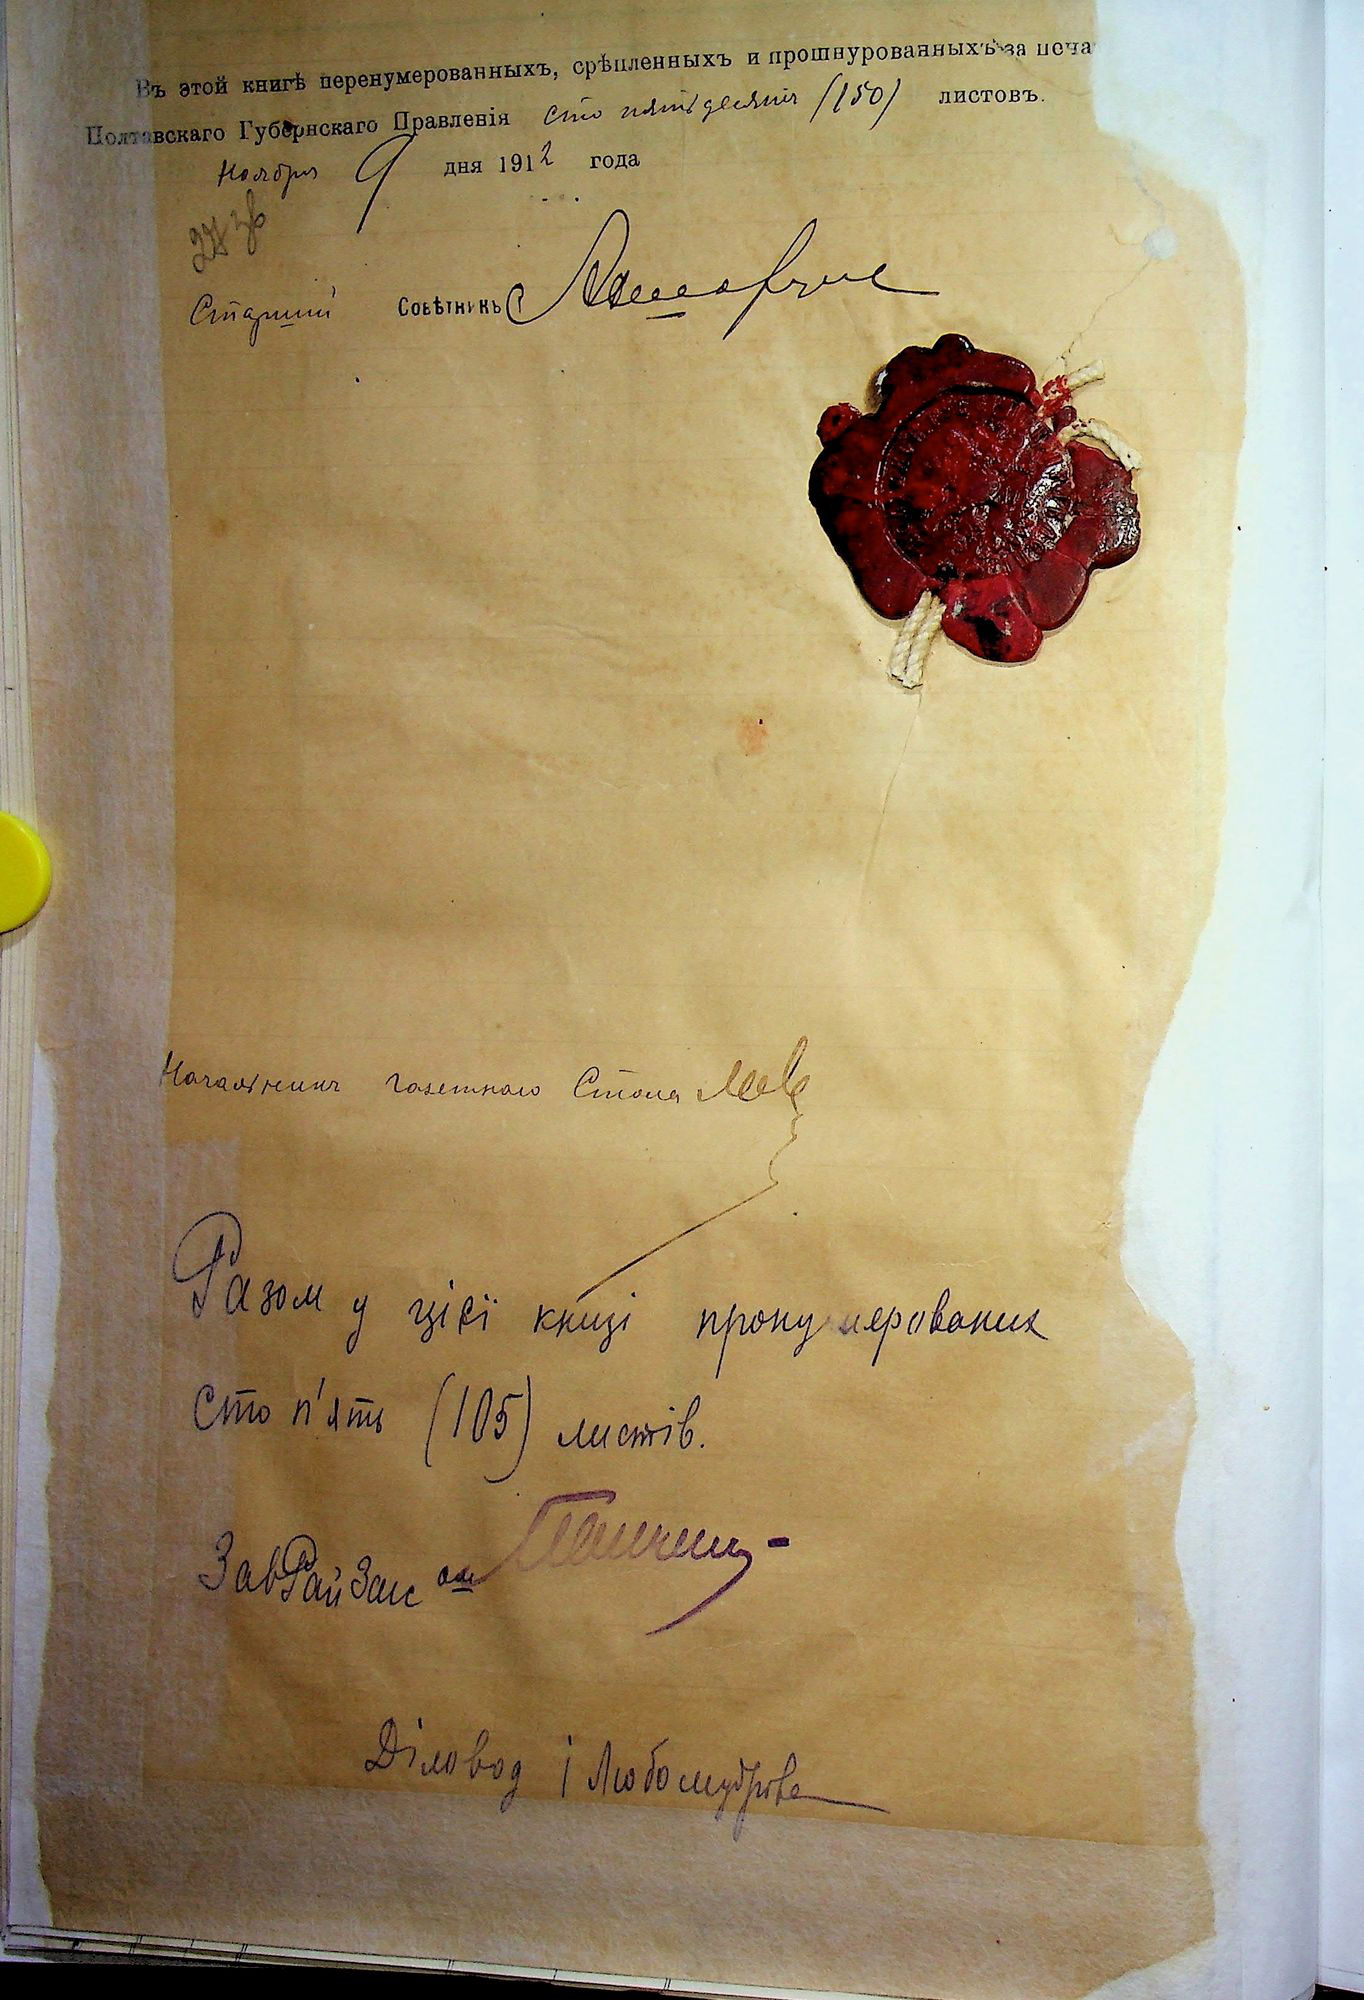 Въ этой книгѣ перенумерованныхъ, срѣпленныхъ и прошнурованныхъ за печа
Полтавскаго Губернскаго Правленія сто пятьдесятъ (150) листовъ.
Ноября 9 дня 1912 года
Старший Совѣтникъ
Начальникъ газетнаго Стола
Разом у цієї книзі пронумерованих
сто п'ять (105) листів.
ЗавРайЗагс'ом
Діловод і Любомудрова